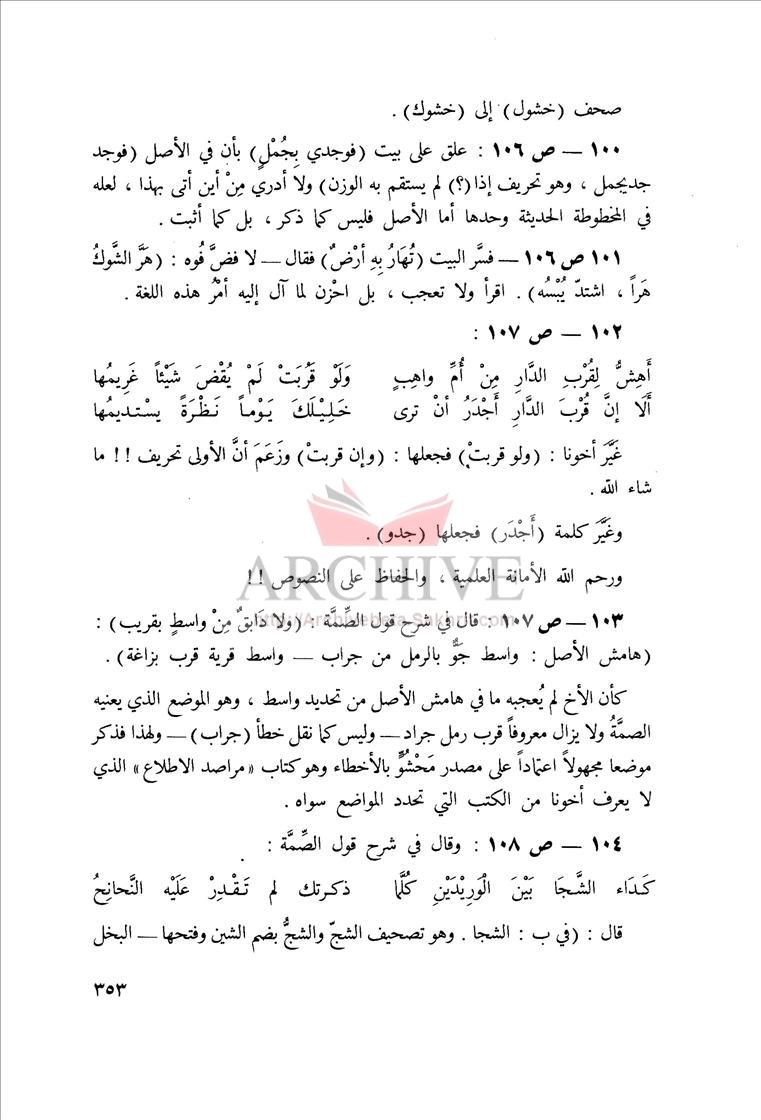 صحف (خشول) إلى (خشوك) .
١٠٠ — ص ١٠٦ : علق على بيت (فوجدي بِجُمْلٍ) بأن في الأصل (فوجد
جديجمل ، وهو تحريف إذا (؟) لم يستقم به الوزن) ولا أدري مِنْ أين أتى بهذا ، لعله
في المخطوطة الحديثة وحدها أما الأصل فليس كما ذكر ، بل كما أثبت .
١٠١ ص ١٠٦ — فسَّر البيت (تُهَارُ بِهِ أرْضٌ) فقال — لا فضَّ فُوه : (هَرَّ الشَّوكُ
هَراً ، اشتدّ يُبْسُه) . اقرأ ولا تعجب ، بل احْزن لما آل إليه أمْرُ هذه اللغة .
١٠٢ — ص ١٠٧ :
أَهِشُّ لِقُرْبِ الدَّارِ مِنْ أُمِّ واهِبٍ وَلَوْ قَرُبَتْ لَمْ يُقْضَ شَيْئاً غَرِيمُها
أَلَا إنَّ قُرْبَ الدَّارِ أَجْدَرُ أنْ ترى خَلِيْلَكَ يَوْماً نَظْرَةً يسْتديمُها
غَيَّرَ أخونا : (ولو قربتْ) فجعلها : (وإن قربتْ) وزَعَمَ أنَّ الأولى تحريف !! ما
شاء الله .
وغيَّرَ كلمة (أَجْدَر) فجعلها (جدو) .
ARCHIVE
ورحم الله الأمانة العلمية ، والحفاظ على النصوص !!
١٠٣ — ص ١٠٧ : قال في شرح قول الصِّمَّة : (ولا دَابقٌ مِنْ واسطٍ بقريب) :
(هامش الأصل : واسط جَوٌّ بالرمل من جراب — واسط قرية قرب بزاغة) .
كأن الأخ لم يُعجبه ما في هامش الأصل من تحديد واسط ، وهو الموضع الذي يعنيه
الصمَّةُ ولا يزال معروفاً قرب رمل جراد — وليس كما نقل خطأ (جراب) — ولهذا فذكر
موضعا مجهولاً اعتماداً على مصدر مَحْشُوٍّ بالأخطاء وهو كتاب «مراصد الاطلاع» الذي
لا يعرف أخونا من الكتب التي تحدد المواضع سواه .
١٠٤ — ص ١٠٨ : وقال في شرح قول الصِّمَّة :
كَدَاء الشَّجَا بَيْنَ الْوَرِيْدَيْنِ كُلَّما ذكرتك لم تَقْدِرْ عَلَيْه النَّحانِحُ
قال : (في ب : الشجا . وهو تصحيف الشجّ والشجُّ بضم الشين وفتحها — البخل
٣٥٣